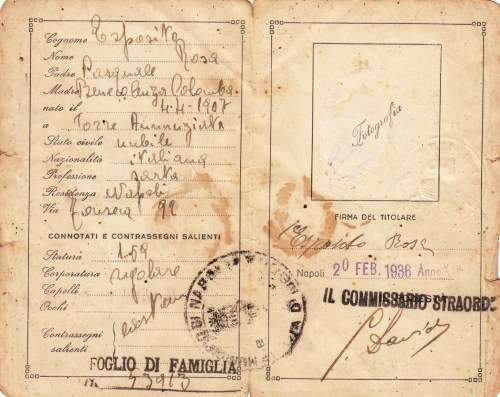 Cognome Esposito
Nome Rosa
Padre Pasquale
Madre Colomba
nato il 4-4-1907
a Torre Annunziata
Stato civile nubile
Nazionalità italiana
Professione sarta
Residenza Napoli
Via Fonseca 92
CONNOTATI E CONTRASSEGNI SALIENTI
Statura 1.59
Corporatura regolare
Capelli
Occhi castani
Contrassegni
salienti
FOGLIO DI FAMIGLIA
N.
Fotografia
FIRMA DEL TITOLARE
Esposito Rosa
Napoli 20 FEB. 1936 Anno
IL COMMISSARIO STRAORD